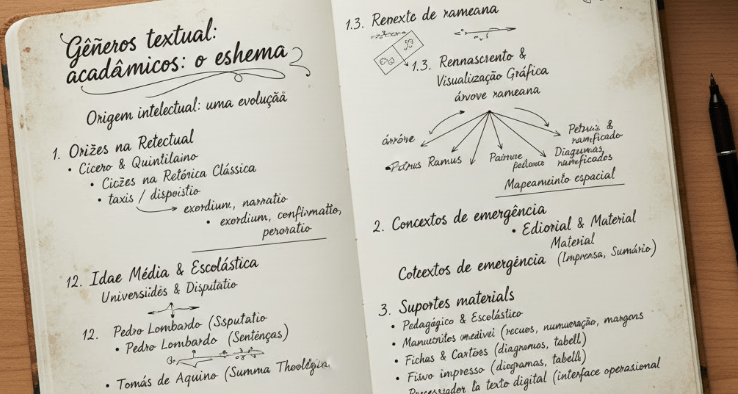 Gêñeros textual:
acadâmicos: o eshema
Origem intelectual: uma evoluçãã
1. Orižes na Retectual
• Cicero & Quintilaino
• Cicžes na Retórica Clássica
• taxis / dispoistio
exordium, narratio
• exordium, confirmatto,
peroratio
12. Idae Média & Escolástica
Universiidẽs & Disputãtio
12. Pedro Lombardo (Ssputatio
• Pedro Lombardo (Sentenças)
• Tomás de Aquino (Summa Theologia
1.3. Renexte de rameana
1.3. Rennascrento &
Visualização Gráfica
árvove rameana
árrôre
Petrus Ramus
Petruis &
ramificado
Diagramas,
ramificados
Mapeameinto espacial
2. Concextos de emergência
• Ediorial & Material
Material
Coteextos de emergência (Imprensa, Sumário)
3. Suportes materials
• Pedagógico & Escolástico
• Manuscritos medivei (recuos, numueração, margons
• Fichas & Cartões (diagramos, tabell)
• Fiivo impresso (diogramas, tabell)
Processador la texto digital (interface operasional